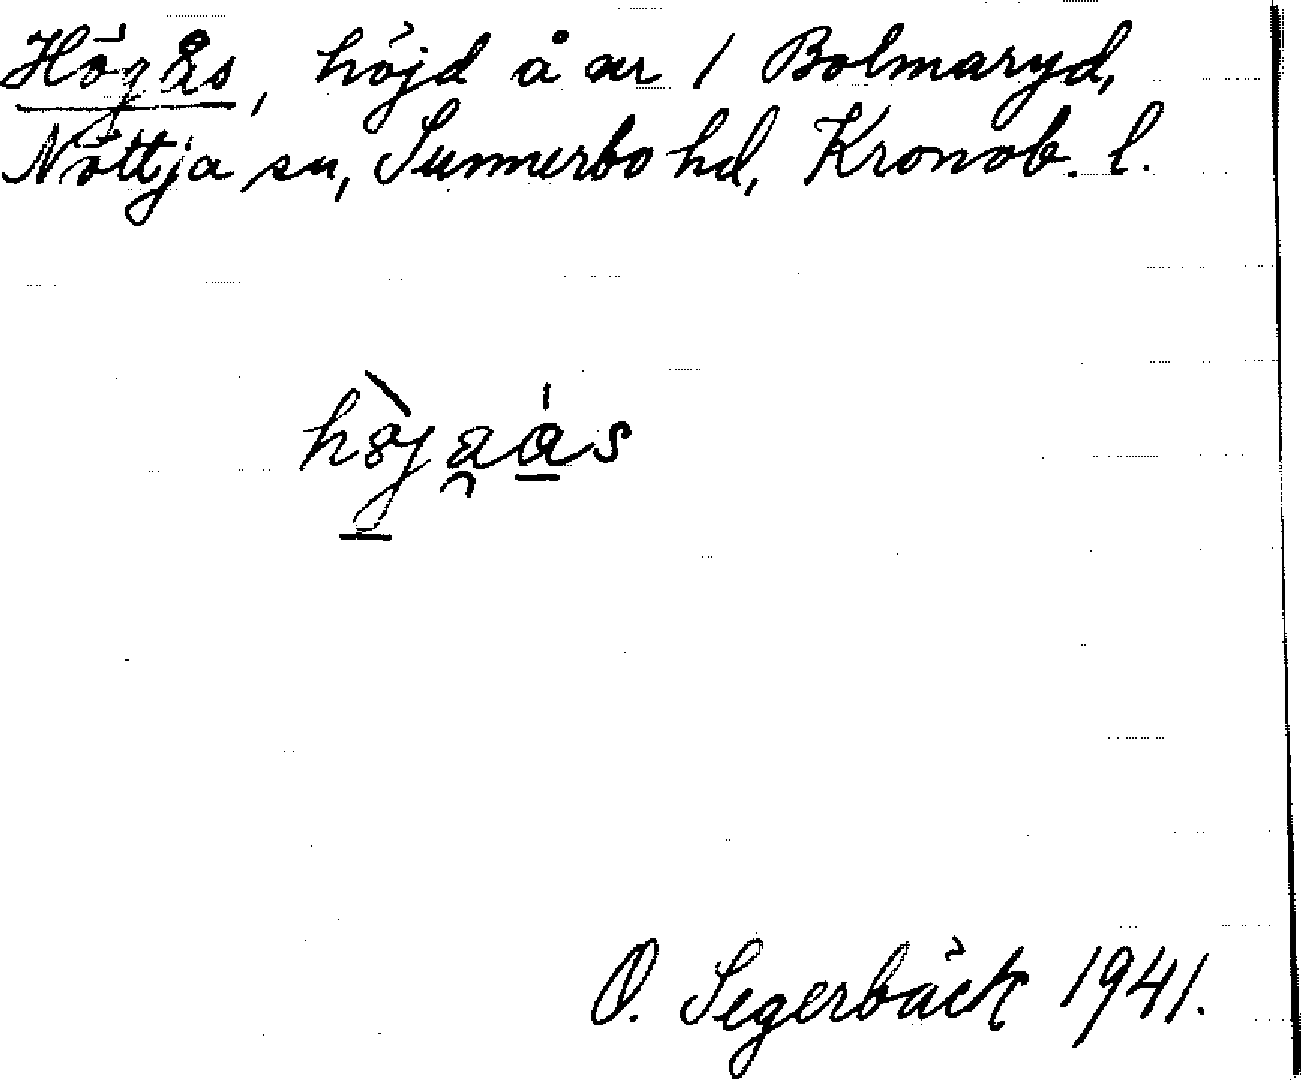 Högås, höjd å nr 1 Bolmaryd,
Nöttja sn, Sunnerbo hd, Kronob. l.
O. Segerbäck 1941.